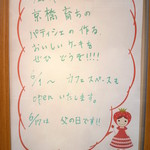 京橋育ちの
パティシエの作る
おいしいケーキを
ぜひどうぞ!!!!
6/1〜 カフェスペースも
いたします。
父の日です!!